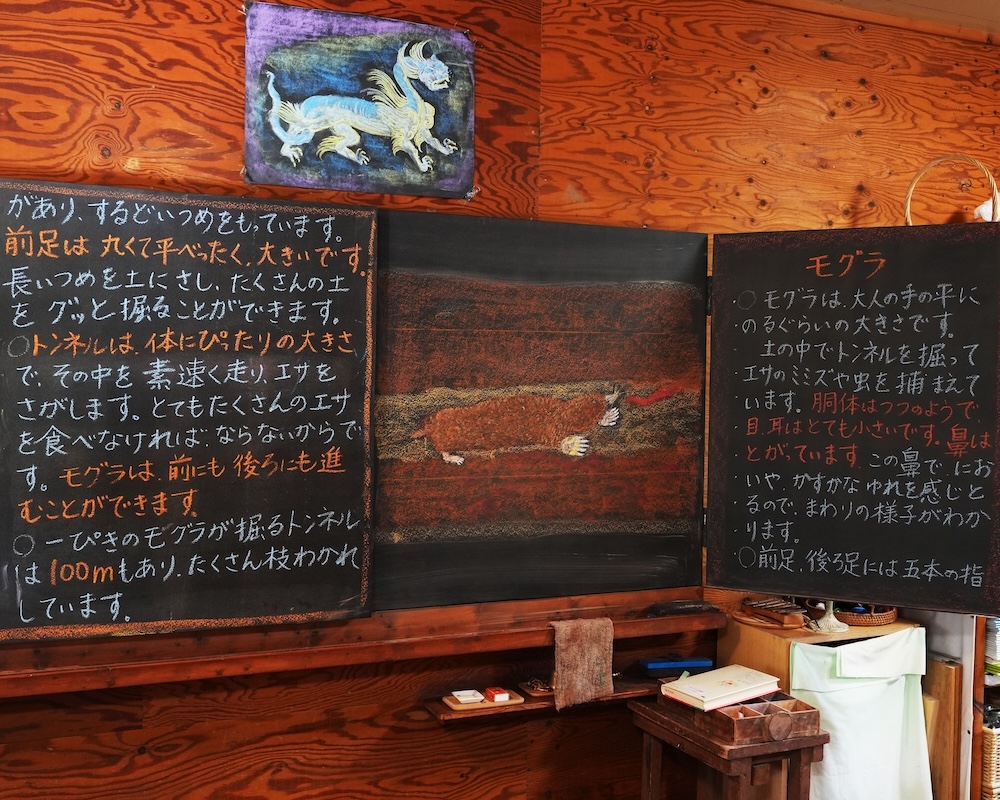 モグラ
○モグラは、大人の手の平に
のるぐらいの大きさです。
土の中でトンネルを掘って
エサのミミズや虫を捕まえて
います。胴体はつつのようで、
目、耳はとても小さいです。鼻は
とがっています。この鼻で、にお
いや、かすかなゆれを感じと
るので、まわりの様子がわか
ります。
○前足、後ろ足には五本の指
があり、するどいつめをもっています。
前足は 丸くて平べったく、大きいです。
長いつめを土にさし、たくさんの土
を グッと掘ることができます。
○トンネルは、体にぴったりの大きさ
で、その中を 素速く走り、エサを
さがします。とてもたくさんのエサ
を食べなければ、ならないからで
す。モグラは、前にも 後ろにも進
むことができます。
○一ぴきのモグラが掘るトンネル
は 100mもあり、たくさん枝わかれ
しています。